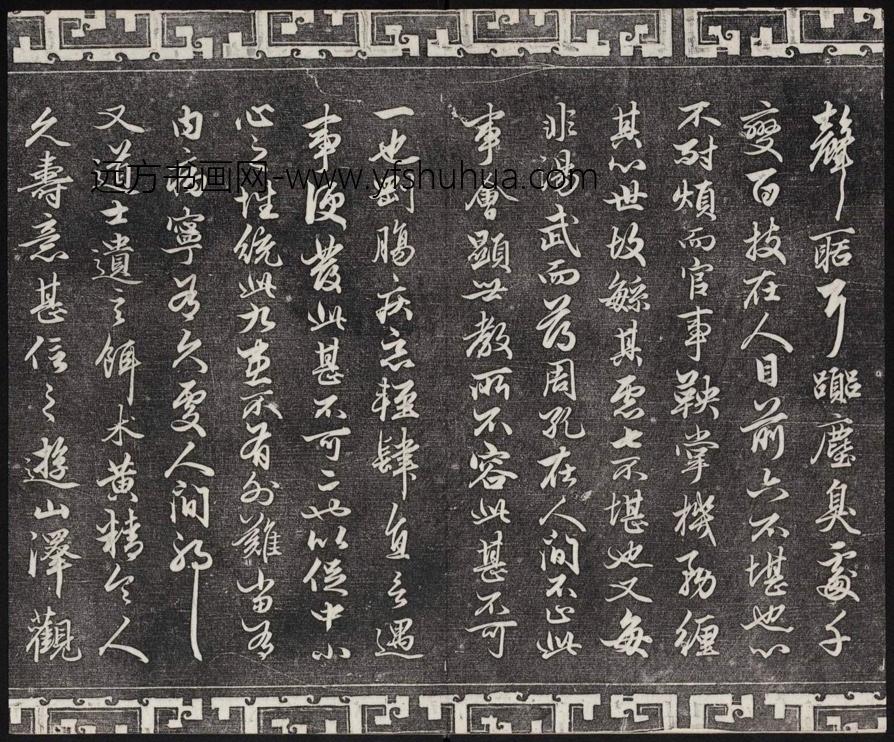 聲聒耳囂塵臭處千
變百技在人目前六不堪也心
不耐煩而官事鞅掌機務纏
其心世故繁其慮七不堪也又每
非湯武而薄周孔在人間不止此
事會顯世教所不容此甚不可
一也剛腸疾惡輕肆直言遇
事便發此甚不可二也以促中小
心之性統此九患不有外難當有
内病寧有久處人間耶
又道士遺言餌术黃精令人
久壽意甚信之遊山澤觀
远方书画网-www.yfshuhua.com